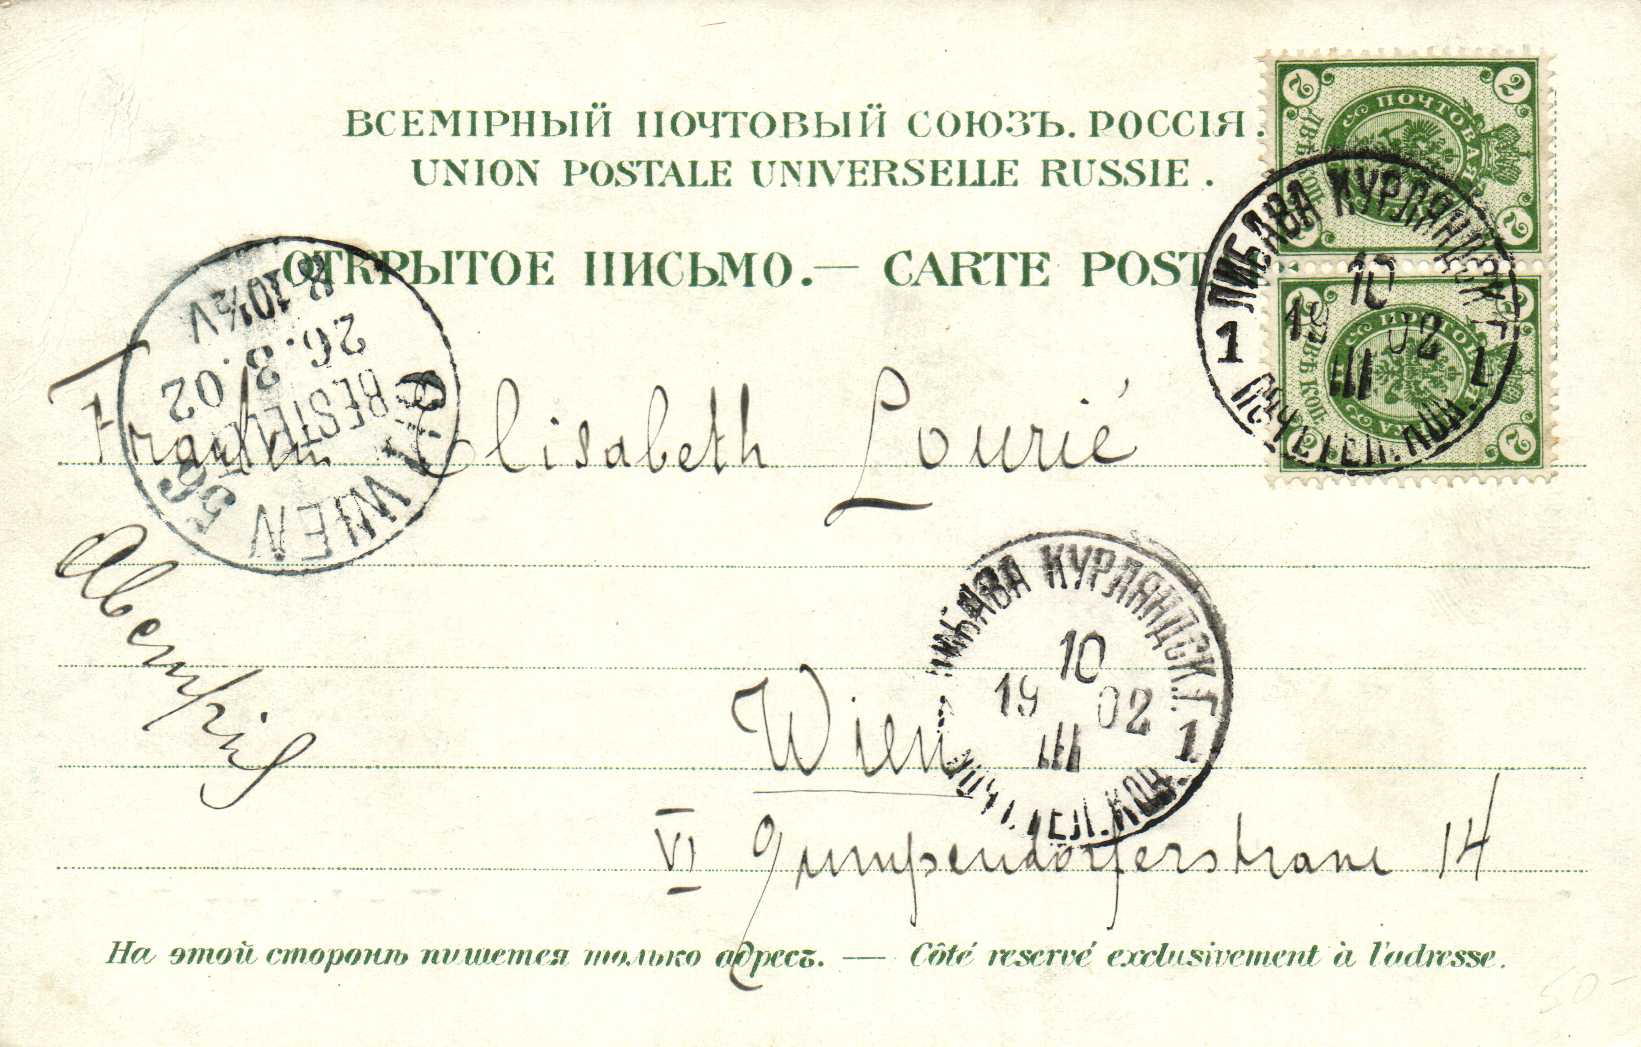 ВСЕМІРНЫЙ ПОЧТОВЫЙ СОЮЗЪ. РОССІЯ.
UNION POSTALE UNIVERSELLE RUSSIE.
ОТКРЫТОЕ ПИСЬМО.— CARTE POST
2 2
ПОЧТОВАЯ
2 2
ПОЧТОВ МАРКА
ДВѢ КОП
2
ЛИБАВА КУРЛЯНДСК. Г.
10
19 02
III
1 1
ПОЧ. ТЕЛ. КОН.
8. 10½V
26. 3. 02
BESTELLT
6/1 WIEN 56
Fräulein Elisabeth Lourié
ЛИБАВА КУРЛЯНДСК. Г.
10
19 02
III
1
ПОЧ. ТЕЛ. КОН.
Wien
VI Gumpendorferstrasse 14
На этой сторонѣ пишется только адресъ. — Côté reservé exclusivement à l'adresse.
50-